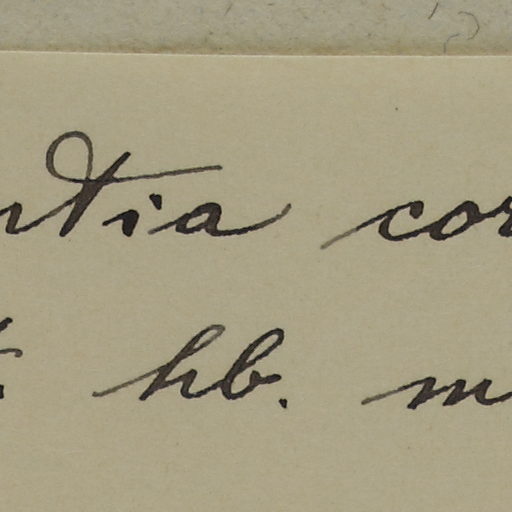 ntia cor
t. hb. m